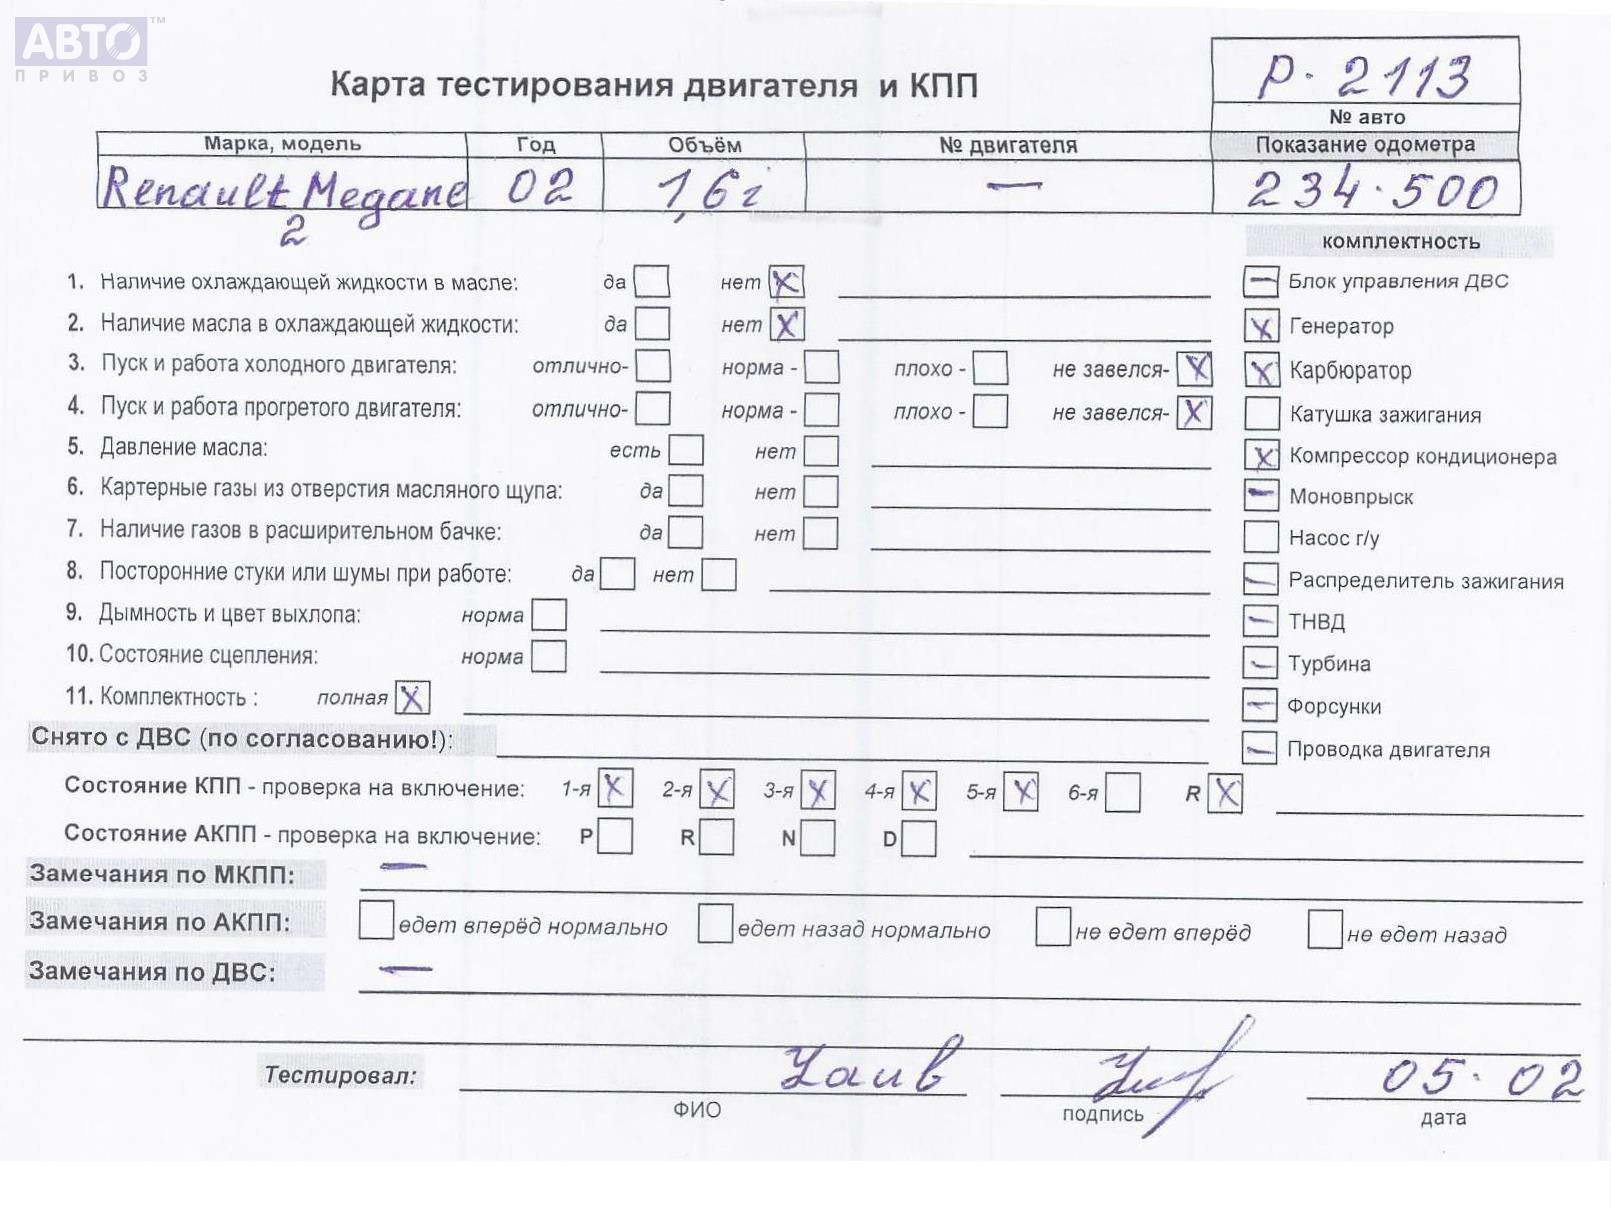 АВТО™
ПРИВОЗ
Р-2113
Карта тестирования двигателя и КПП
№ авто
Марка, модель Год Объём № двигателя Показание одометра
Renault Megane 02 1,6i — 234.500
2
комплектность
1. Наличие охлаждающей жидкости в масле: да нет X — Блок управления ДВС
2. Наличие масла в охлаждающей жидкости: да нет X X Генератор
3. Пуск и работа холодного двигателя: отлично- норма - плохо - не завелся- X X Карбюратор
4. Пуск и работа прогретого двигателя: отлично- норма - плохо - не завелся- X Катушка зажигания
5. Давление масла: есть нет X Компрессор кондиционера
6. Картерные газы из отверстия масляного щупа: да нет — Моновпрыск
7. Наличие газов в расширительном бачке: да нет Насос г/у
8. Посторонние стуки или шумы при работе: да нет — Распределитель зажигания
9. Дымность и цвет выхлопа: норма — ТНВД
10. Состояние сцепления: норма — Турбина
11. Комплектность : полная X — Форсунки
Снято с ДВС (по согласованию!): — Проводка двигателя
Состояние КПП - проверка на включение: 1-я X 2-я X 3-я X 4-я X 5-я X 6-я R X
Состояние АКПП - проверка на включение: P R N D
Замечания по МКПП: —
Замечания по АКПП: едет вперёд нормально едет назад нормально не едет вперёд не едет назад
Замечания по ДВС: —
Тестировал: 05.02
ФИО подпись дата